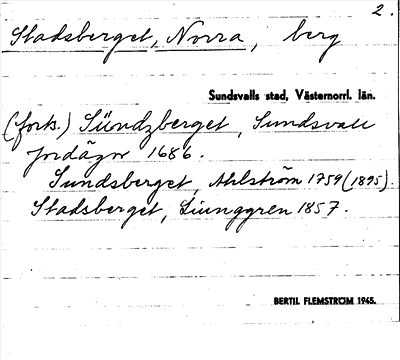 2.
Stadsberget, Norra, berg
Sundsvalls stad, Västernorrl. län.
(forts.) Sündzberget, Sundsvall
jordägor 1686.
Sundsberget, Ahlström 1759 (1895).
Stadsberget, Ljunggren 1857.
BERTIL FLEMSTRÖM 1945.